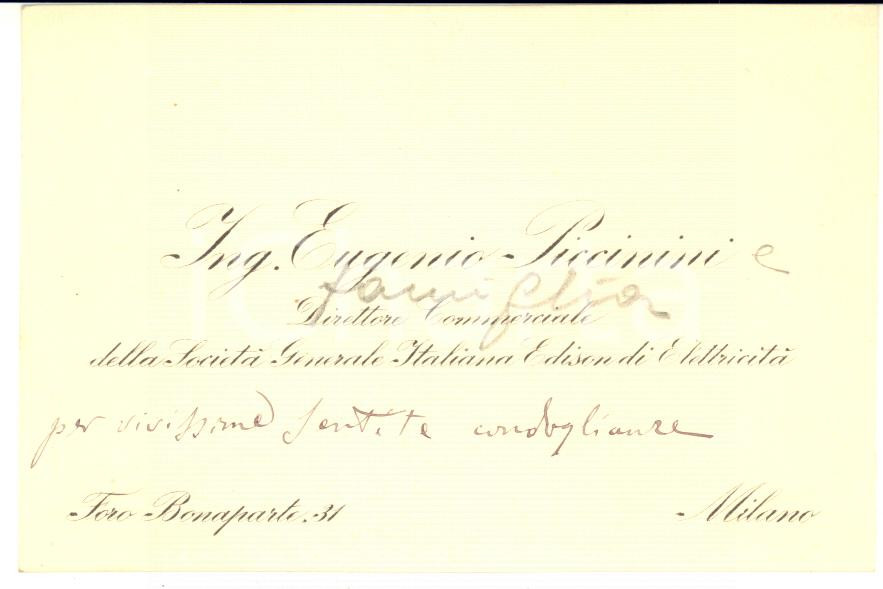 Ing. Eugenio Piccinini e
famiglia
Direttore Commerciale
della Società Generale Italiana Edison di Elettricità
per vivissime sentite condoglianze
Foro Bonaparte. 31
Milano